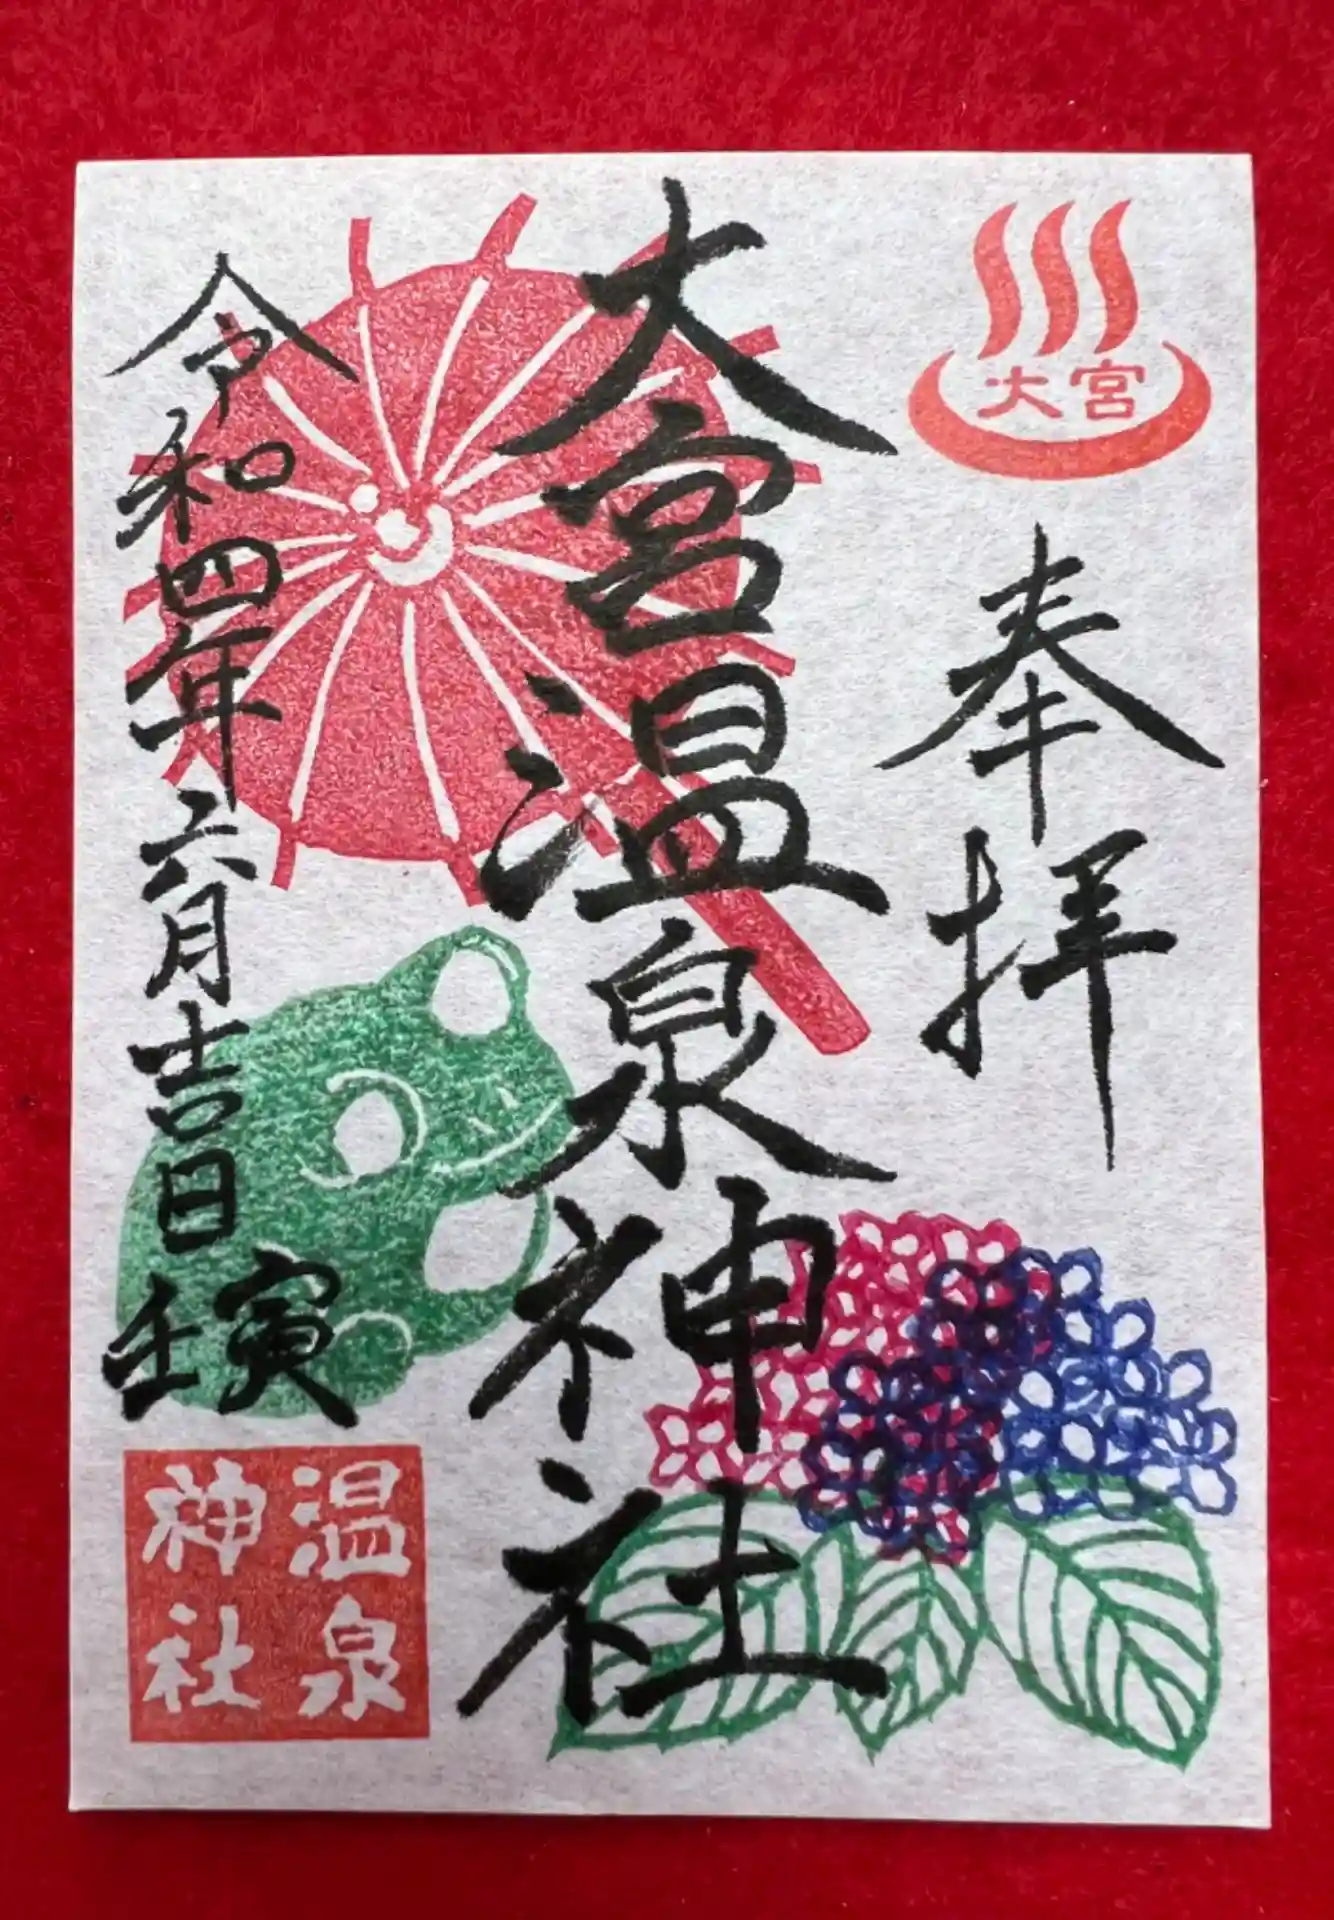 大宮
奉拝
大宮温泉神社
令和四年六月吉日
壬寅
温泉
神社